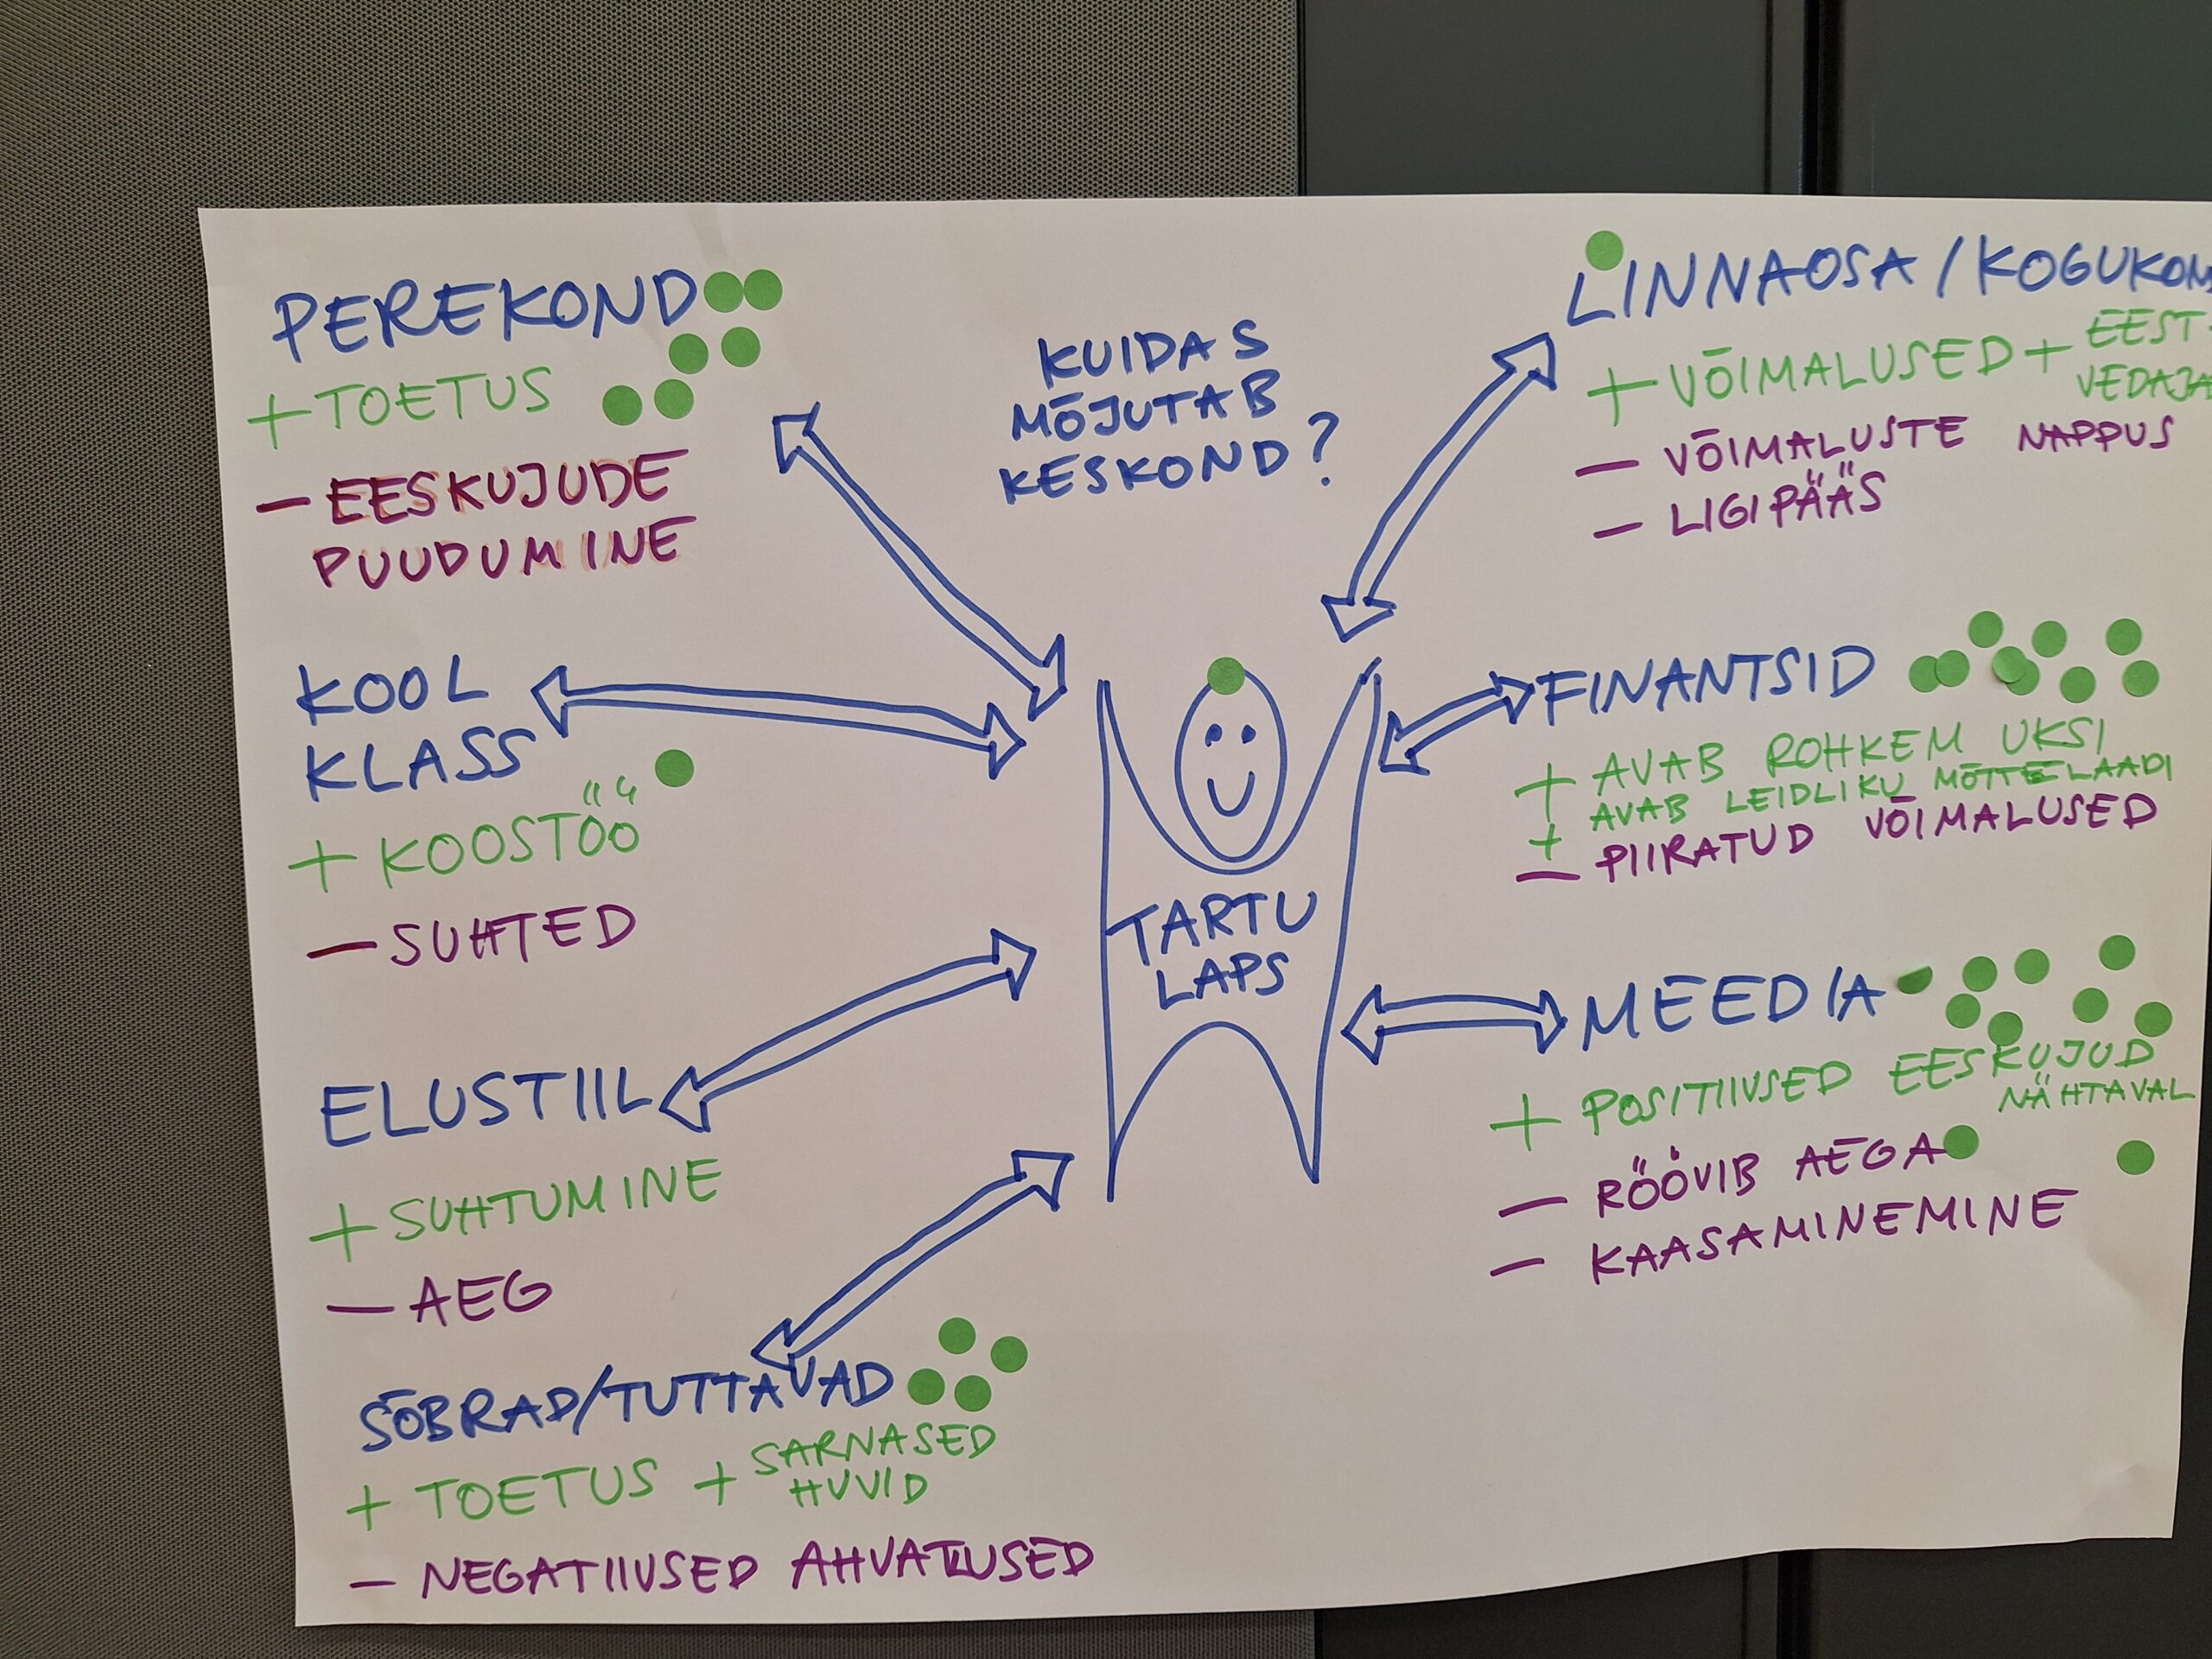 PEREKOND
+ TOETUS
– EESKUJUDE
PUUDUMINE
KOOL
KLASS
+ KOOSTÖÖ
– SUHTED
ELUSTIIL
+ SUHTUMINE
– AEG
SÕBRAD/TUTTAVAD
+ TOETUS + SARNASED
HUVID
– NEGATIIVSED AHVATLUSED
KUIDAS
MÕJUTAB
KESKOND?
TARTU
LAPS
LINNAOSA / KOGUKON
+ VÕIMALUSED + EEST-
VEDAJA
– VÕIMALUSTE NAPPUS
– LIGIPÄÄS
FINANTSID
+ AVAB ROHKEM UKSI
+ AVAB LEIDLIKU MÕTTELAADI
– PIIRATUD VÕIMALUSED
MEEDIA
+ POSITIIVSED EESKUJUD
NÄHTAVAL
– RÖÖVIB AEGA
– KAASAMINEMINE